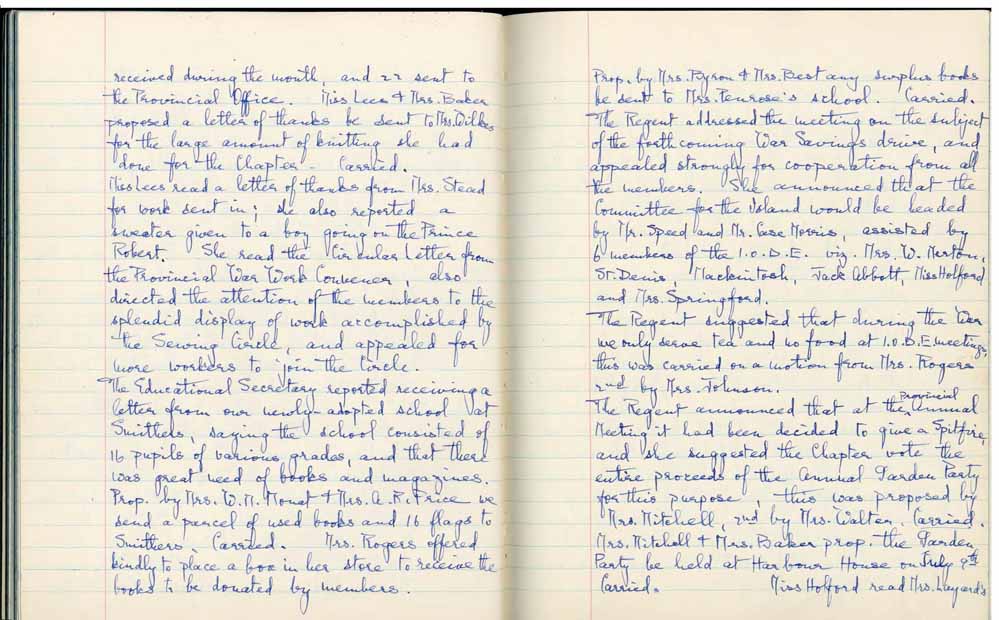 received during the month, and 22 sent to
the Provincial Office. Miss Lees & Mrs. Baker
proposed a letter of thanks be sent to Mrs. Wilkes
for the large amount of knitting she had
done for the Chapter - Carried.
Miss Lees read a letter of thanks from Mrs. Stead
for work sent in; she also reported a
sweater given to a boy going on the Prince
Robert. She read the Circular Letter from
the Provincial War Work Convener, also
directed the attention of the members to the
splendid display of work accomplished by
the Sewing Circle, and appealed for
more workers to join the Circle.
The Educational Secretary reported receiving a
letter from our newly-adopted school at
Smithers, saying the school consisted of
16 pupils of various grades, and that there
was great need of books and magazines.
Prop. by Mrs. W. M. Mouat & Mrs. A. R. Price we
send a parcel of used books and 16 flags to
Smithers. Carried. Mrs. Rogers offered
kindly to place a box in her store to receive the
books to be donated by members.
Prop. by Mrs. Byron & Mrs. Best any surplus books
be sent to Mrs. Penrose's school. Carried.
The Regent addressed the meeting on the subject
of the forthcoming War Savings drive, and
appealed strongly for cooperation from all
the members. She announced that the
Committee for the Island would be headed
by Mr. Speed and Mr. Case Morris, assisted by
6 members of the I.O.D.E. viz. Mrs. W. Norton,
St. Denis, Mackintosh, Jack Abbott, Miss Holford
and Mrs. Springford.
The Regent suggested that during the War
we only serve tea and no food at I.O.D.E. meetings,
this was carried on a motion from Mrs. Rogers
2nd by Mrs. Johnson.
The Regent announced that at the Provincial Annual
Meeting it had been decided to give a Spitfire,
and she suggested the Chapter vote the
entire proceeds of the Annual Garden Party
for this purpose, this was proposed by
Mrs. Mitchell, 2nd by Mrs. Walter. Carried.
Mrs. Mitchell & Mrs. Baker prop. the Garden
Party be held at Harbour House on July 9th
Carried. Miss Holford read Mrs. Layard's